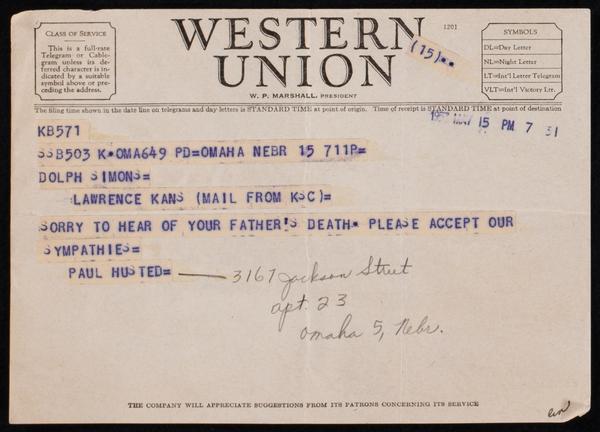 CLASS OF SERVICE
This is a full-rate
Telegram or Cable-
gram unless its de-
ferred character is in-
dicated by a suitable
symbol above or pre-
ceding the address.
WESTERN
UNION
1201
(15)
W. P. MARSHALL, PRESIDENT
SYMBOLS
DL=Day Letter
NL=Night Letter
LT=Int'l Letter Telegram
VLT=Int'l Victory Ltr.
The filing time shown in the date line on telegrams and day letters is STANDARD TIME at point of origin. Time of receipt is STANDARD TIME at point of destination
MAY 15 PM 7 31
KB571
SSB503 K•OMA649 PD=OMAHA NEBR 15 711P=
DOLPH SIMONS=
LAWRENCE KANS (MAIL FROM KSC)=
SORRY TO HEAR OF YOUR FATHER'S DEATH• PLEASE ACCEPT OUR
SYMPATHIES=
PAUL HUSTED= — 3167 Jackson Street
apt. 23
Omaha 5, Nebr.
THE COMPANY WILL APPRECIATE SUGGESTIONS FROM ITS PATRONS CONCERNING ITS SERVICE